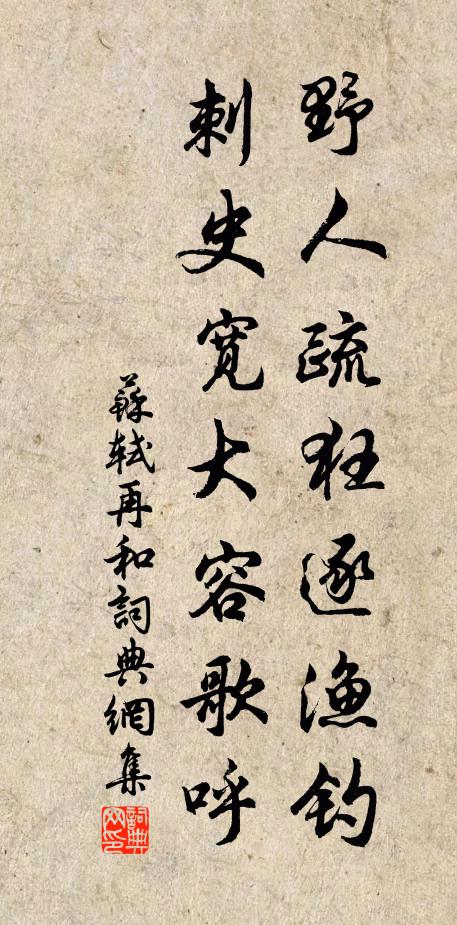 野人疏狂逐漁釣
刺史寬大容歌呼
蘇軾再和詞典網集
詞典網印